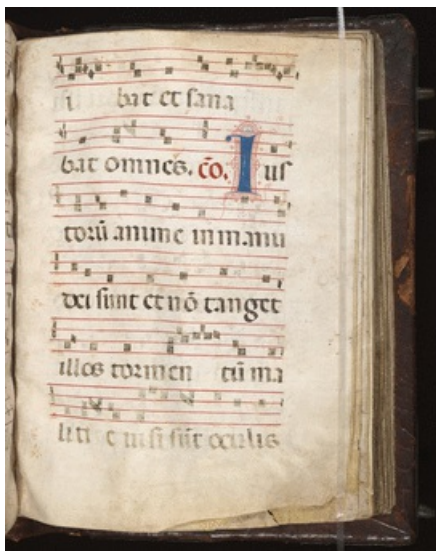 i bat et sana
bat omnes. cō. Ius
torū anime in manu
dei sunt et nō tanget
illos tormen tū ma
liti e